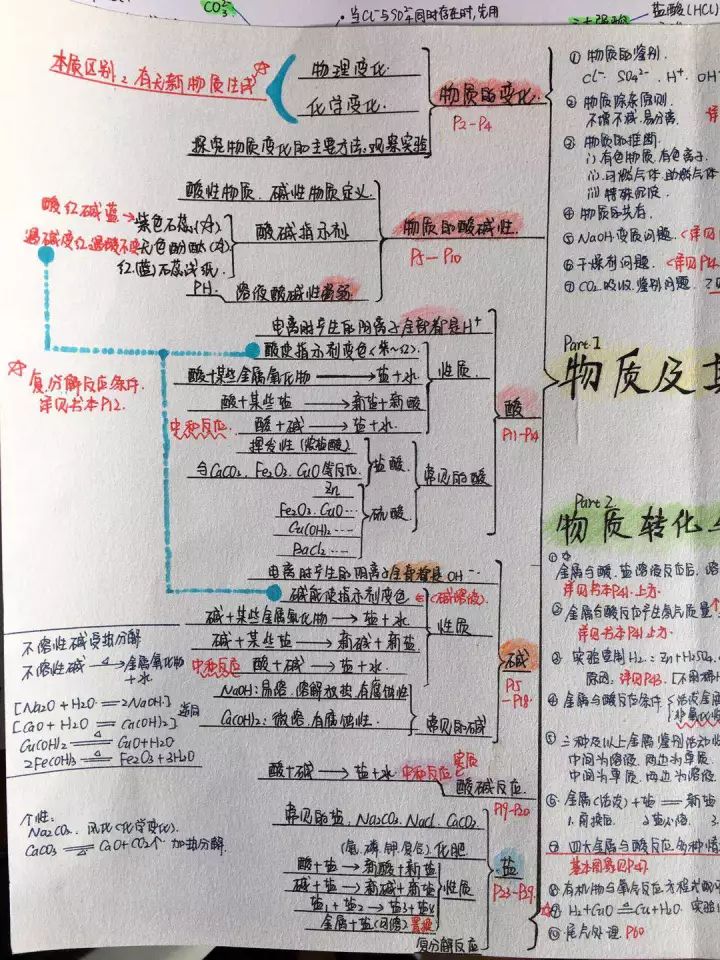 CO₃²⁻
·当Cl⁻与SO₄²⁻同时存在时,先用
三大强酸
盐酸(HCl)
本质区别:有无新物质生成
物理变化
化学变化
物质的变化
P2-P4
探究物质变化的主要方法:观察实验
酸性物质、碱性物质定义
酸红碱蓝→紫色石蕊
遇碱变红遇酸不变 无色酚酞
红(蓝)石蕊试纸
酸碱指示剂
PH
溶液酸碱性强弱
物质的酸碱性
P5-P10
电离时产生的阳离子全部都是H⁺
酸使指示剂变色
酸+某些金属氧化物→盐+水
酸+某些盐→新盐+新酸
中和反应 酸+碱→盐+水
性质
复分解反应条件
详见书本P12
挥发性(浓盐酸)
与CaCO₃、Fe₂O₃、CuO等反应
盐酸
Zn
Fe₂O₃、CuO…
Cu(OH)₂……
BaCl₂……
硫酸
常见的酸
酸
P11-P14
电离时产生的阴离子全部都是OH⁻
碱能使指示剂变色
(碱溶液)
碱+某些金属氧化物→盐+水
碱+某些盐→新碱+新盐
中和反应 酸+碱→盐+水
性质
NaOH:易溶、溶解放热、有腐蚀性
Ca(OH)₂:微溶、有腐蚀性
常见的碱
碱
P15-P18
不溶性碱受热分解
不溶性碱→金属氧化物
+水
[Na₂O+H₂O=2NaOH]
[CaO+H₂O=Ca(OH)₂]
Cu(OH)₂=CuO+H₂O
2Fe(OH)₃=Fe₂O₃+3H₂O
酸+碱→盐+水 中和反应
实质
酸碱反应
P19-P20
个性:
Na₂CO₃:风化(化学变化)
CaCO₃=CaO+CO₂↑ 加热分解
常见的盐:Na₂CO₃、NaCl、CaCO₃
(氮、磷、钾、复合)化肥
酸+盐→新酸+新盐
碱+盐→新碱+新盐
盐₁+盐₂→盐₃+盐₄
金属+盐(可溶)置换
性质
复分解反应
盐
P23-P29
①物质的鉴别
Cl⁻ SO₄²⁻ H⁺ OH⁻
②物质除杂原则
不增不减、易分离
③物质的推断
i)有色物质、有色离子
ii)可燃气体、助燃气体
iii)特殊沉淀
④物质的共存
⑤NaOH变质问题
⑥干燥剂问题
⑦CO₂吸收、鉴别问题
Part 1
物质及其
Part 2
物质转化
①金属与酸、盐溶液反应后
详见书本P41上方
②金属与酸反应产生氢气质量
详见书本P41上方
③实验室制H₂:Zn+H₂SO₄
原因:详见P43
④金属与酸反应条件
活泼金属
⑤三种及以上金属鉴别活动性
中间为溶液、两边为单质
中间为单质、两边为溶液
⑥金属(活泼)+盐=新盐
1.前换后 2.盐必溶 3.
⑦四大金属与酸反应各种情
基本图见P47
⑧有机物与氧气反应方程式
⑨H₂+CuO=Cu+H₂O 实验
⑩尾气处理 P60